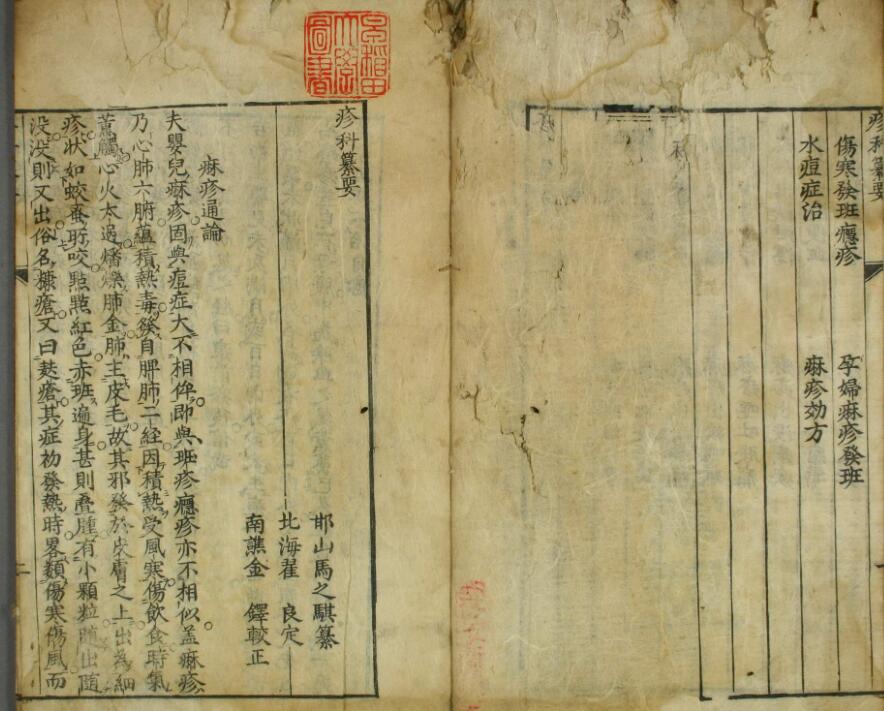 疹科纂要
傷寒發班癮疹　孕婦麻疹發班
水痘症治　麻疹効方
早稲田大學圖書
疹科纂要
邯山馬之騏纂
北海翟　良定
南譙金　鐸較正
麻疹通論
夫嬰兒麻疹固與痘症大不相侔即與班疹癮疹亦不相似盖麻疹
乃心肺六腑蘊積熱毒發自脾肺二経因積熱受風寒傷飲食時氣
薰觸心火太過燔爍肺金肺主皮毛故其邪發於皮膚之上出為細
疹状如蛟蚤所咬㸃㸃紅色赤班遍身甚則叠腫有小顆粒随出随
没没則又出俗名糠瘡又曰麩瘡其症初發熱時畧類傷寒傷風而